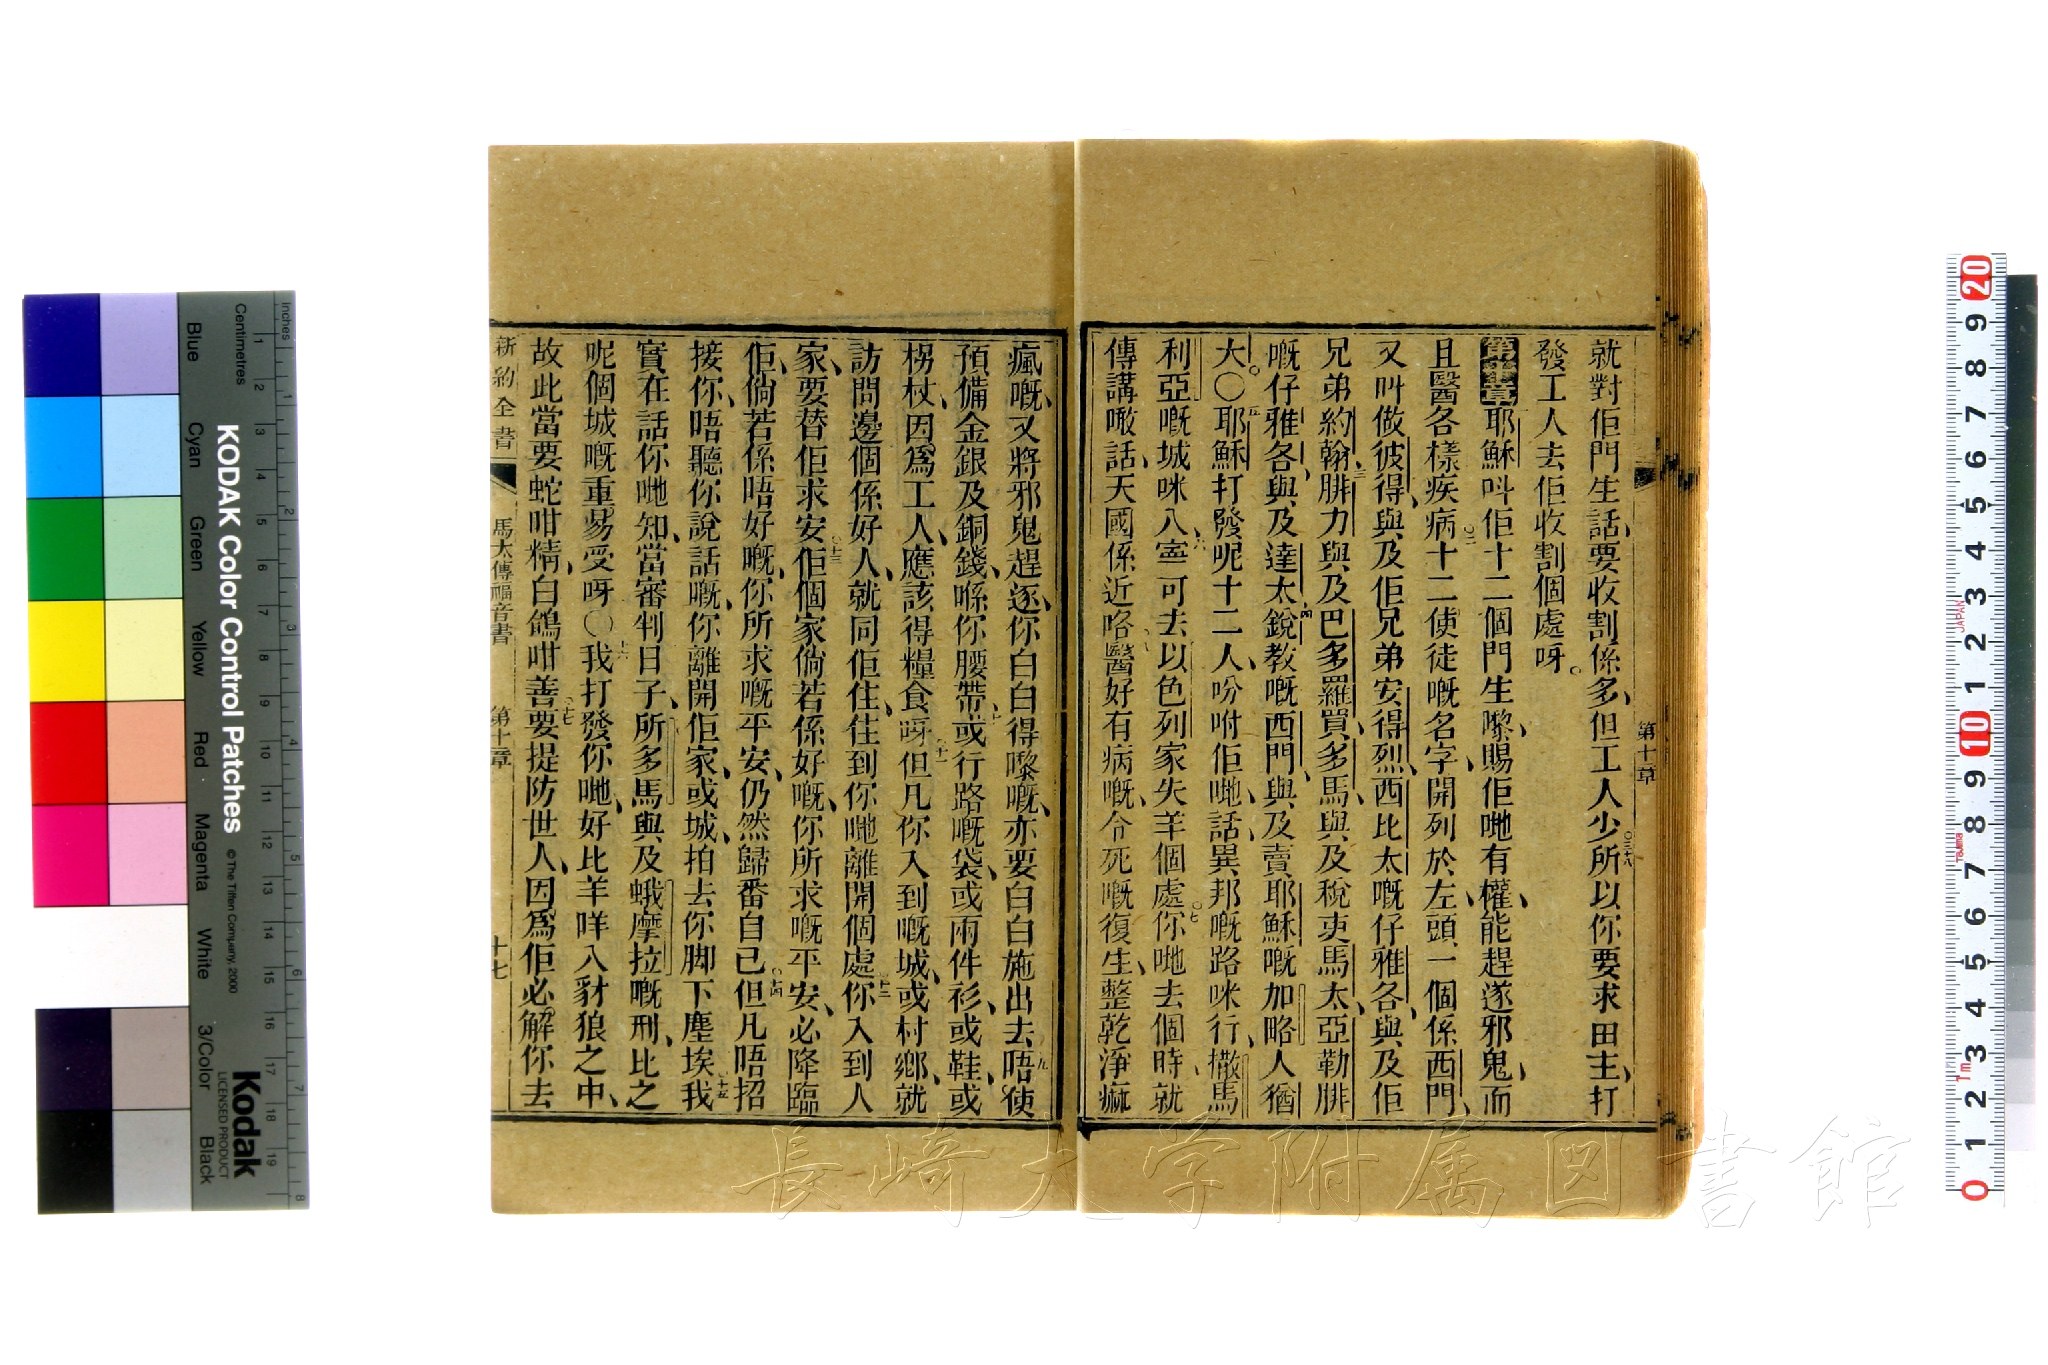 第十章
就對佢門生話要收割係多但工人少○三十八所以你要求田主打
發工人去佢收割個處呀。
第十章耶穌呌佢十二個門生嚟賜佢哋有權能趕逐邪鬼而
且醫各樣疾病○二十二使徒嘅名字開列於左頭一個係西門
又呌做彼得與及佢兄弟安得烈西比太嘅仔雅各與及佢
兄弟約翰三腓力與及巴多羅買多馬與及稅吏馬太亞勒腓
嘅仔雅各與及達太四銳教嘅西門與及賣耶穌嘅加略人猶
大。○五耶穌打發呢十二人吩咐佢哋話異邦嘅路咪行撒馬
利亞嘅城咪入六寧可去以色列家失羊個處○七你哋去個時就
傳講噉話天國係近咯八醫好有病嘅令死嘅復生整乾淨痲
瘋嘅又將邪鬼趕逐你白白得嚟嘅亦要白白施出去九唔使
預備金銀及銅錢喺你腰帶十或行路嘅袋或兩件衫或鞋或
柺杖因爲工人應該得糧食呀○十一但凡你入到嘅城或村鄉就
訪問邊個係好人就同佢住住到你哋離開個處十二你入到人
家要替佢求安○十三佢個家倘若係好嘅你所求嘅平安必降臨
佢倘若係唔好嘅你所求嘅平安仍然歸番自己○十四但凡唔招
接你唔聽你說話嘅你離開佢家或城拍去你脚下塵埃○十五我
實在話你哋知當審判日子所多馬與及蛾摩拉嘅刑比之
呢個城嘅重易受呀○十六我打發你哋好比羊咩入豺狼之中
故此當要蛇咁精白鴿咁善○十七要提防世人因爲佢必解你去
新約全書 馬太傳福音書 第十章 十七
長崎大学附属図書館
KODAK Color Control Patches
© The Tiffen Company, 2000
Kodak
LICENSED PRODUCT
Inches
Centimetres
Blue
Cyan
Green
Yellow
Red
Magenta
White
3/Color
Black
1 2 3 4 5 6 7 8
1 2 3 4 5 6 7 8 9 10 11 12 13 14 15 16 17 18 19
20 9 8 7 6 5 4 3 2 1 10 9 8 7 6 5 4 3 2 1 0
JAPAN
Tajima
1m